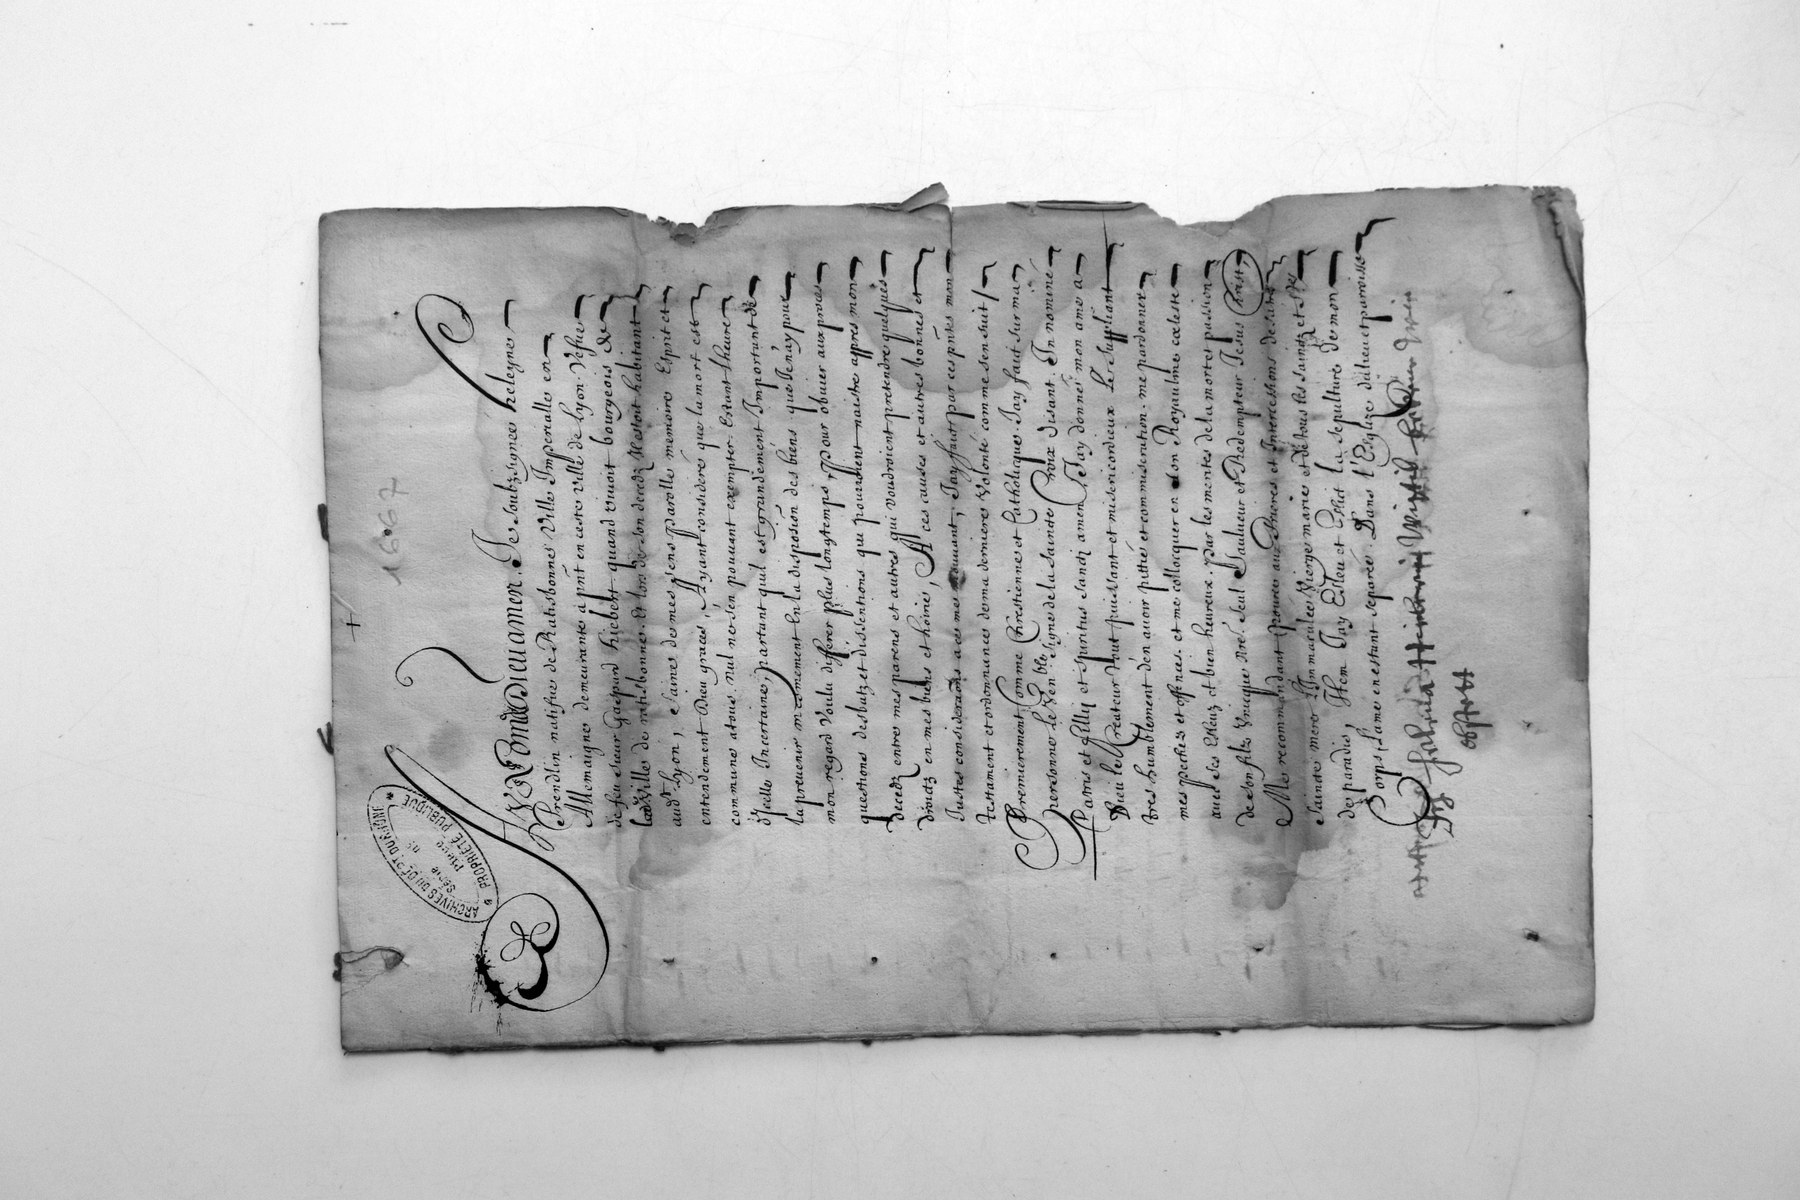 1667
ARCHIVES DU DÉPT DU RHÔNE
PROPRIÉTÉ PUBLIQUE
Série
Pièce no
Au Nom de Dieu amen. Je soubzsignée heleyne
Prendlin natifue de Ratisbonne Ville Imperialle en
Allemaigne demeurante a pnt en ceste ville de Lyon. Vefue
de feu sieur Gaspard hiebert quand viuoit bourgeois de
lad. Ville de ratisbonne. Et lors de son decedz Il estoit habitant
aud. Lyon, Saine de mes sens Parolle memoire Esprit et
entendement Dieu grace, Ayant consideré que la mort est
commune a tous. nul ne s'en pouuant exempter. Estant l'heure
d'jcelle Incertaine, partant quil est grandement Important de
la preuenir mesmement En la disposion des biens que Jen'ay pour
mon regard Voulu differer plus longtemps, Pour obuier aux proces
questions desbatz et dissentions qui pourroient naistre appres mon
decedz entre mes parens et autres qui Voudroient pretendre quelques
droictz en mes biens et hoirie, A ces causes et autres bonnes et
Justes considerations a ce me mouuant, Jay faict par ces pntes mon
testament et ordonnance de ma derniere Volonté comme sen suit /
Premierement Comme Chrestienne et Catholicque Jay faict sur ma
personne le Ven.ble signe de la Saincte Croix disant. In nomine
Patris et fillij et Spiritus Sancti amen, Jay donné mon ame a
Dieu le Createur tout puissant et misericordieux Le suppliant
tres humblement d'en auoir pittié et commiseration. me pardonner
mes pechés et offences. et me collocquer en son Royaulme celeste
auec ses Esleuz et bien heureux. par les merites de la mort et passion
de son filz Vnicque Nré. Seul Saulueur et Redempteur Jesus Christ,
Me recommandant encores aux Prieres et Intercessions de sa tres
saincte mere Immaculée Vierge marie et de tous les sainctz et stes
de paradis, Item Jay Esleu et Eslict la sepulture de mon
Corps l'ame en estant separée. Dans l'Esglize du lieu et parroisse